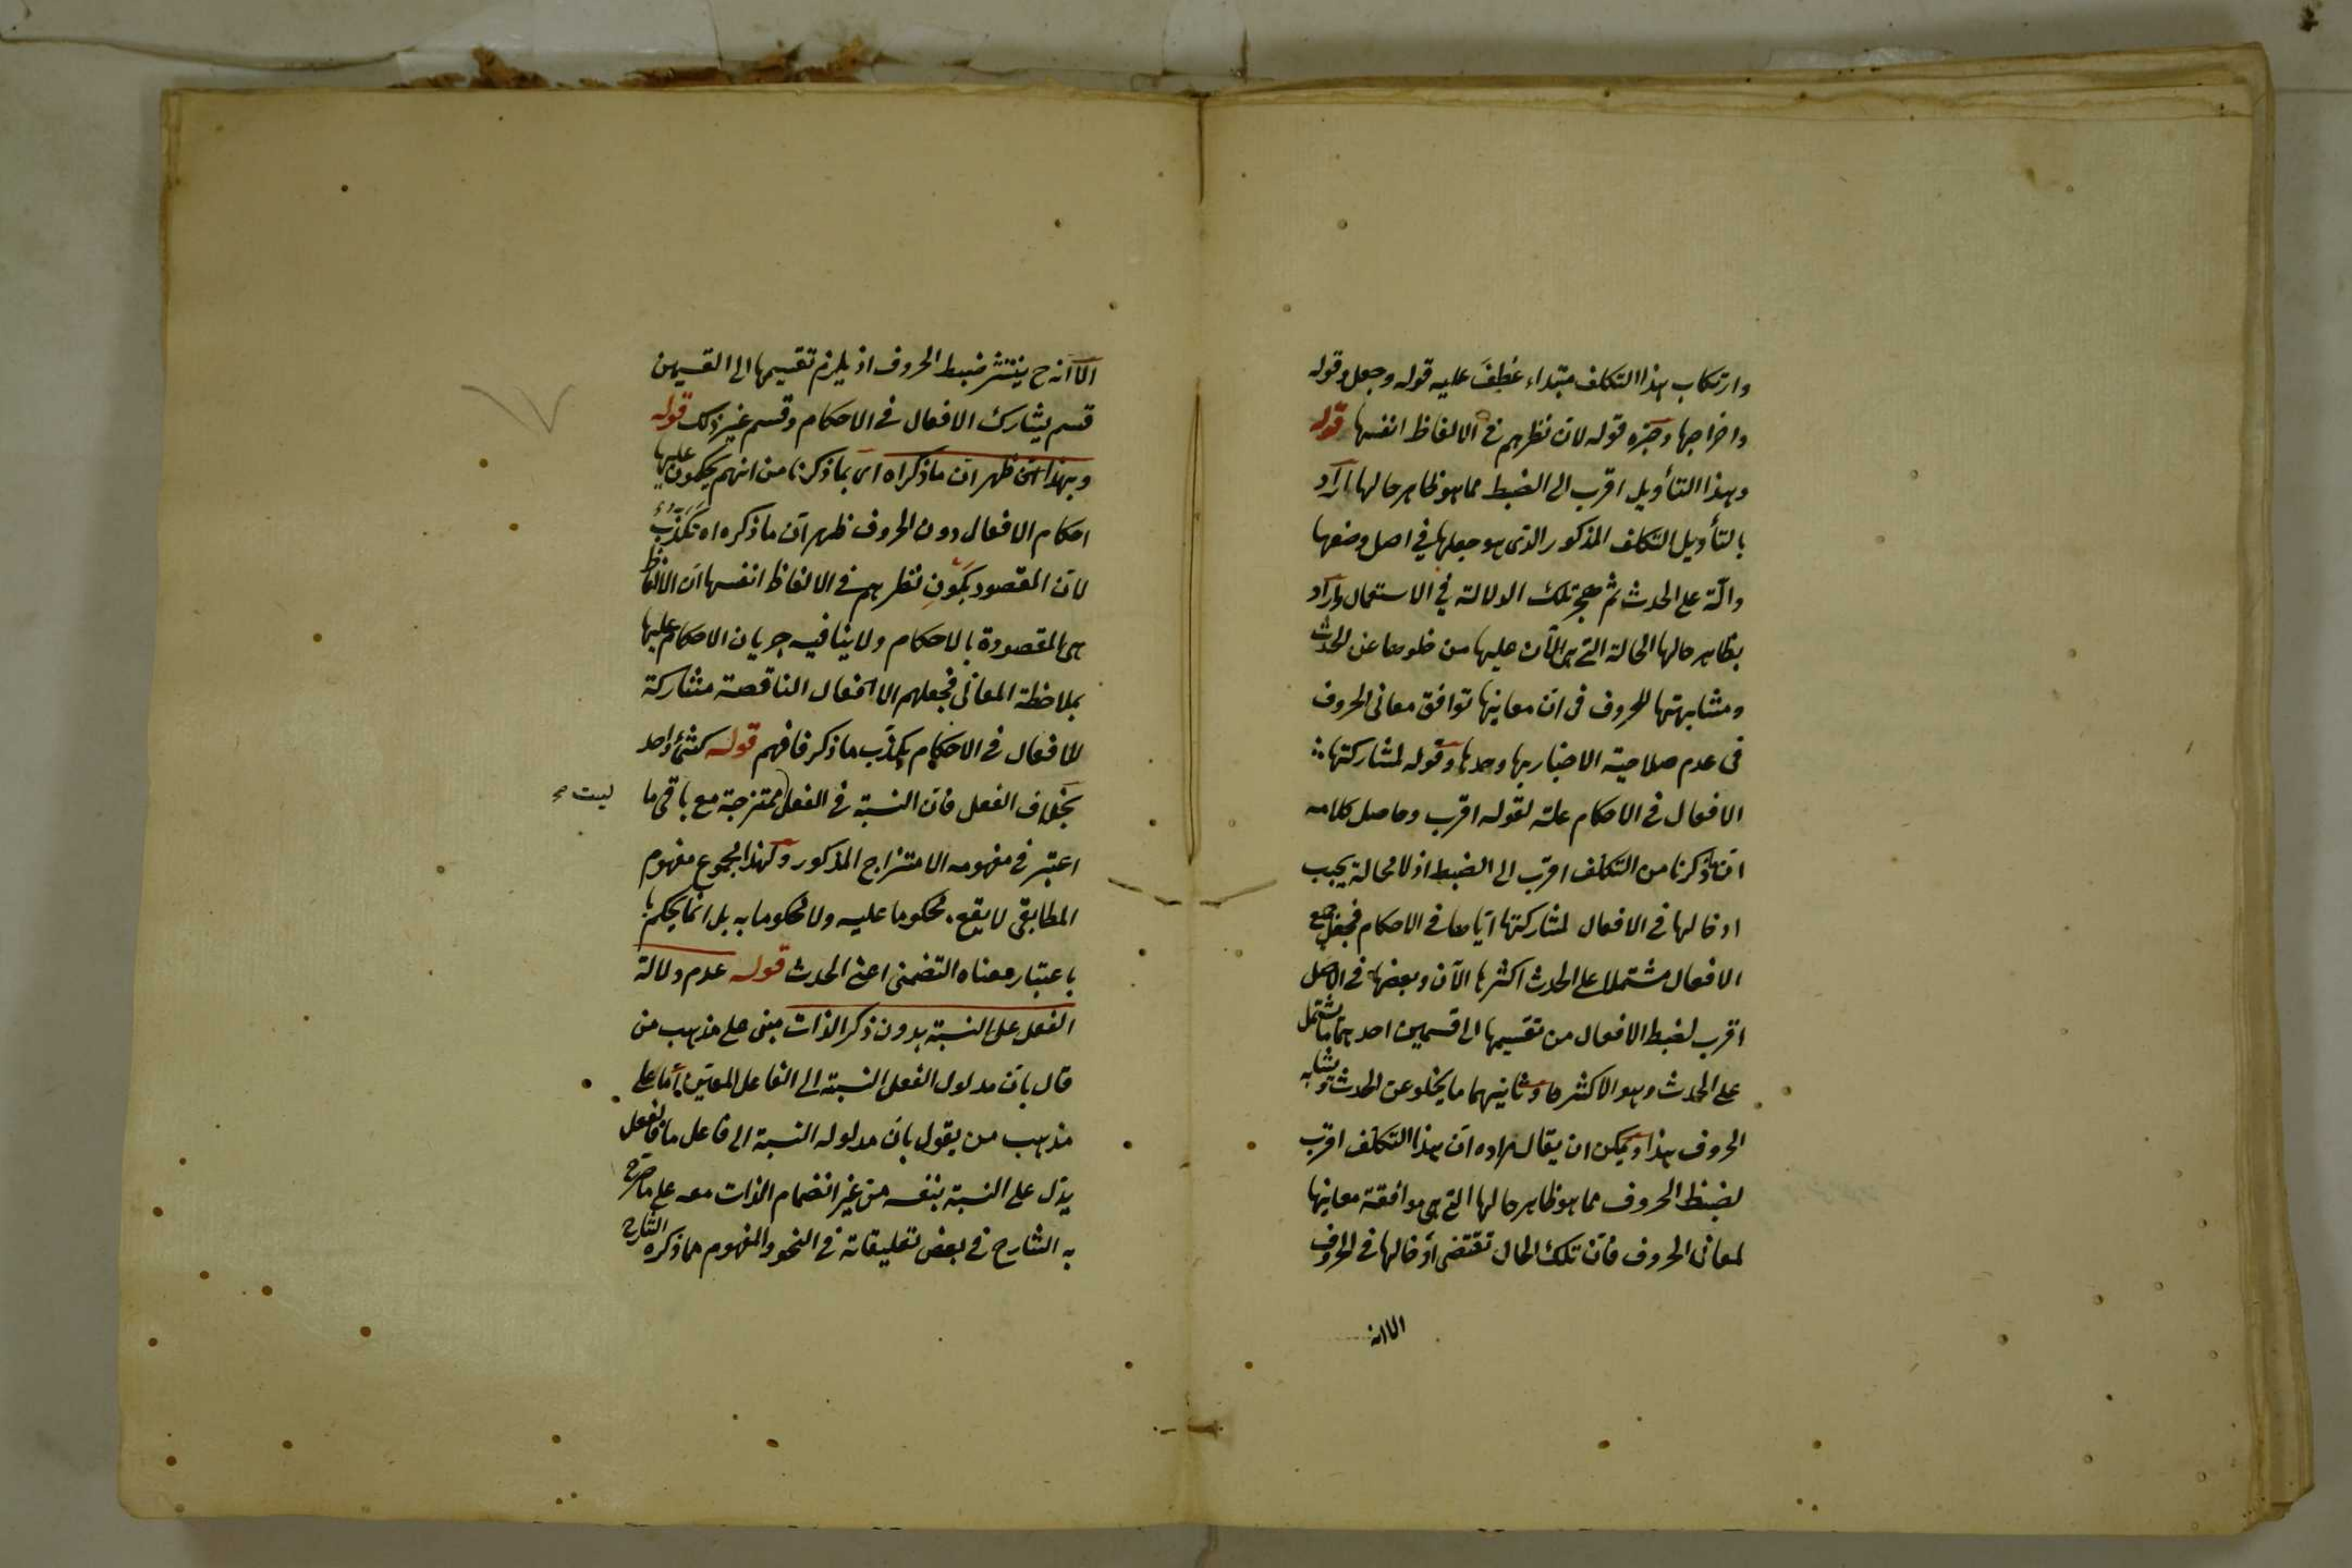 وارتكاب هذا التكلف مبتداء عُطِفَ عليه قوله وجعل وقوله
واخراجها وخبره قوله لان نظرهم في الالفاظ انفسها قوله
وبهذا التأويل اقرب الى الضبط مما هو ظاهر حالها اراد
بالتأويل التكلف المذكور الذى هو جعلها في اصل وضعها
دالّة على الحدث ثم هجر تلك الدلالة في الاستعمال واراد
بظاهر حالها الحالة التى هى الآن عليها من خلوها عن الحدث
ومشابهتها للحروف فى ان معانيها توافق معانى الحروف
فى عدم صلاحية الاخبار بها وحدها وقوله لمشاركتها
الافعال في الاحكام علة لقوله اقرب وحاصل كلامه
ان ما ذكرنا من التكلف اقرب الى الضبط اذ لا محالة يجب
ادخالها فى الافعال لمشاركتها اياها فى الاحكام فجعل جميع
الافعال مشتملا على الحدث اكثرها الآن وبعضها فى الاصل
اقرب لضبط الافعال من تقسيمها الى قسمين احدهما ما يشتمل
على الحدث وهو الاكثر وثانيهما ما يخلو عن الحدث ويشابه
الحروف هذا ويمكن ان يقال مراده ان هذا التكلف اقرب
لضبط الحروف مما هو ظاهر حالها التى هى موافقة معانيها
لمعانى الحروف فان تلك الحال تقتضى ادخالها فى الحروف
الا انه
الا انه ح ينتشر ضبط الحروف اذ يلزم تقسيمها الى القسمين
قسم يشارك الافعال فى الاحكام وقسم غير ذلك قوله
وبهذا ظهر ان ما ذكراه اى بما ذكرنا من انهم يحكمون عليها
احكام الافعال دون الحروف ظهر ان ما ذكره اه تكذب
لان المقصود بكون نظرهم فى الالفاظ انفسها ان الالفاظ
هى المقصودة بالاحكام ولا ينافيه جريان الاحكام عليها
بملاحظة المعانى فجعلهم الافعال الناقصة مشاركة
للافعال فى الاحكام يكذب ما ذكر فافهم قوله كشئ واحد
بخلاف الفعل فان النسبة فى الفعل ممتزجة مع باقى ما
ليست صح
اعتبر فى مفهومه الامتزاج المذكور ولهذا المجموع مفهوم
المطابقى لا يقع محكوما عليه ولا محكوما به بل انما يحكم به
باعتبار معناه التضمنى اعنى الحدث قوله عدم دلالة
الفعل على النسبة بدون ذكر الذات مبنى على مذهب من
قال بان مدلول الفعل النسبة الى الفاعل المعين اما على
مذهب من يقول بان مدلوله النسبة الى فاعل ما فالفعل
يدل على النسبة بنفسه من غير انضمام الذات معه على ما صرح
به الشارح فى بعض تعليقاته فى النحو والمفهوم مما ذكره الشارح